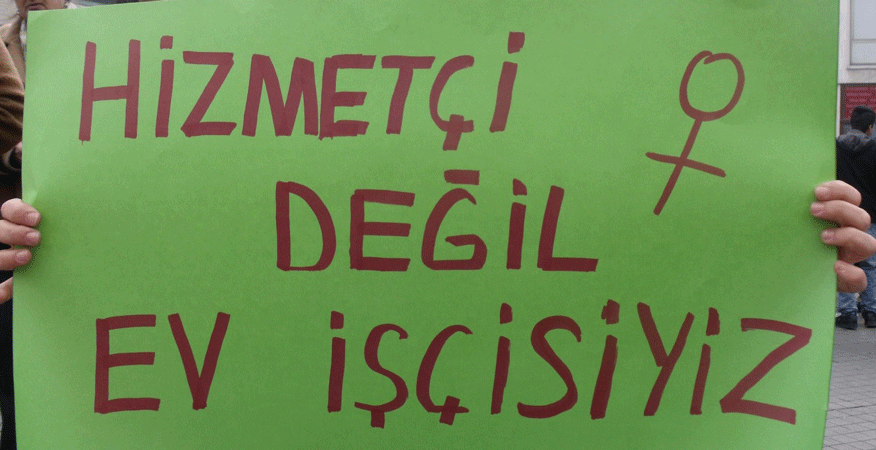 HİZMETÇİ
DEĞİL
EV İŞÇİSİYİZ